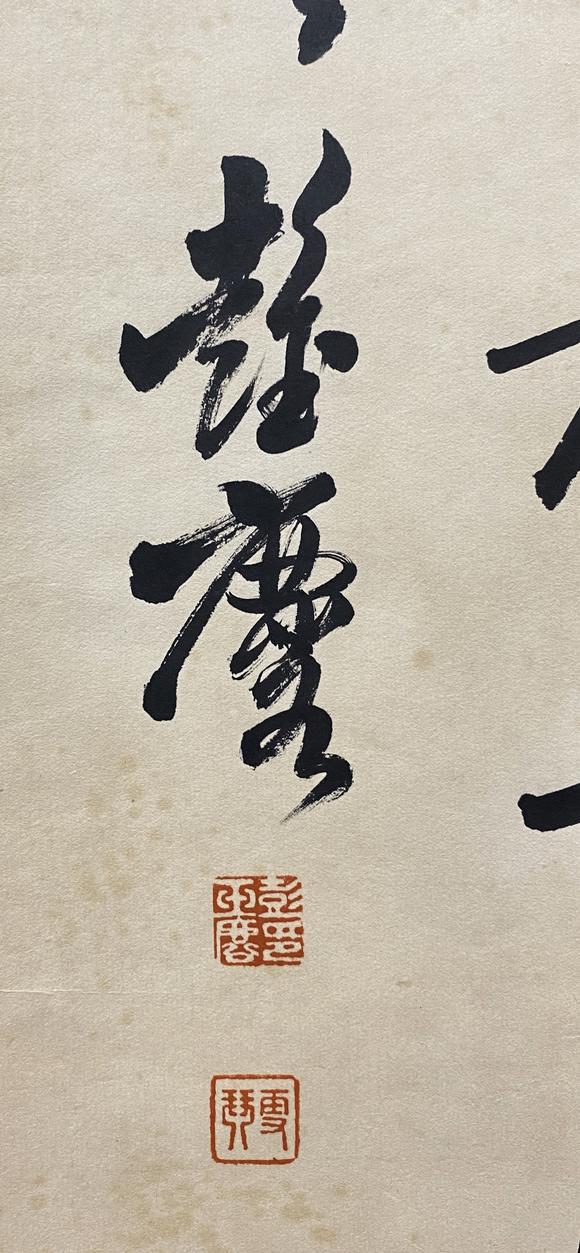 彭玉麐
彭玉麐印
雪琴